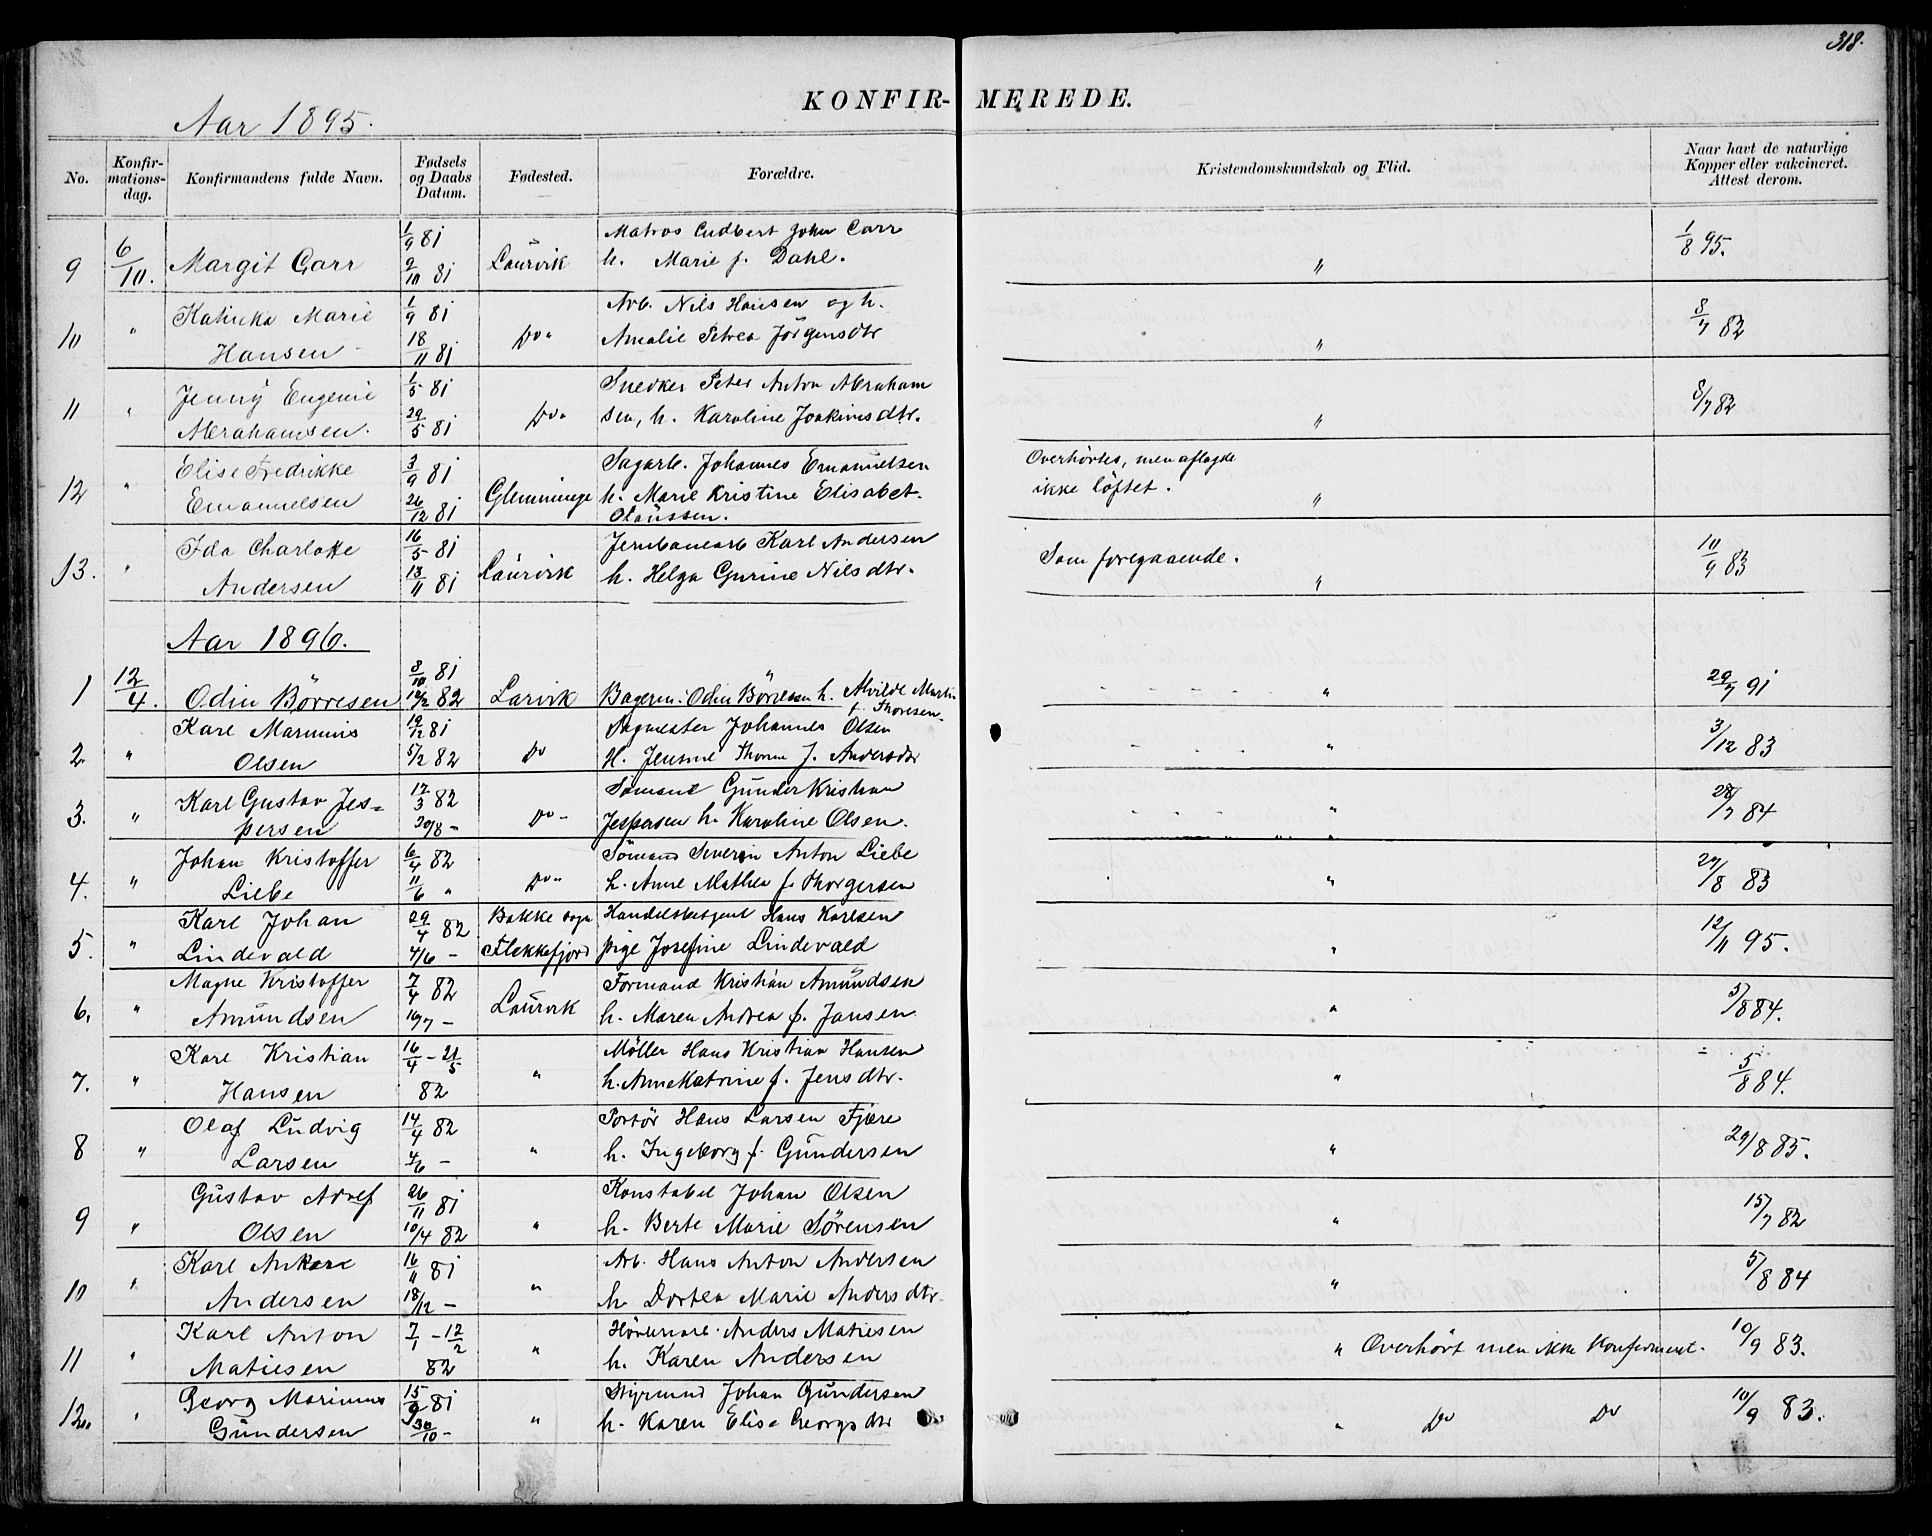 318.
KONFIR-MEREDE.
Aar 1895.
No. | Konfirmationsdag. | Konfirmandens fulde Navn. | Fødsels og Daabs Datum. | Fødested. | Forældre. | Kristendomskundskab og Flid. | Naar havt de naturlige Kopper eller vakcineret. Attest derom.
9 | 6/10. | Margit Carr | 1/9 81 2/10 81 | Laurvik | Matros Cudbert John Carr h. Marie f. Dahl. | " | 1/8 95.
10 | " | Katinka Marie Hansen | 1/9 81 18/11 81 | Do | Arb. Nils Hansen og h. Amalie Petrea Jørgensdtr | " | 8/7 82
11 | " | Jenny Eugenie Abrahamsen. | 1/5 81 29/5 81 | Do | Snedker Peter Anton Abrahamsen, h. Karoline Joakimsdtr. | " | 8/7 82
12 | " | Elise Fredrikke Emanuelsen | 3/9 81 26/12 81 | Glemminge | Sagarb. Johannes Emanuelsen h. Marie Kristine Elisabet Olaussen. | Overhørtes, men aflagde ikke løftet. "
13. | " | Ida Charlotte Andersen | 16/5 81 13/11 81 | Laurvik | Jernbanearb Karl Andersen h. Helga Gurine Nilsdtr. | Som foregaaende. " | 10/9 83
Aar 1896.
1 | 12/4. | Odin Børresen | 8/10 81 12/2 82 | Larvik | Bagerm. Odin Børresen h. Alvilde Martin f. Thoresen. | " | 29/7 91
2. | " | Karl Marinius Olsen | 19/12 81 5/2 82 | Do | Sagmester Johannes Olsen H. Jensine Thorine f. Andersdtr | " | 3/12 83
3. | " | Karl Gustav Jespersen | 17/3 82 20/8 - | Do - | Sømand Gunder Kristian Jespersen h. Karoline Olsen. | " | 28/7 84
4. | " | Johan Kristoffer Liebe | 6/4 82 11/6 " | Do " | Sømand Severin Anton Liebe h. Anne Mathea f. Thorgersen | " | 27/8 83
5. | " | Karl Johan Lindevald | 29/4 82 4/6 - | Bakke sogn Flekkefjord | Handelsbetjent Hans Karlsen pige Josefine Lindevald | " | 12/11 95.
6. | " | Magne Kristoffer Amundsen | 7/4 82 16/7 - | Laurvik | Formand Kristian Amundsen h. Maren Andrea f. Jansen | " | 5/8 84.
7. | " | Karl Kristian Hansen | 16/4 - 21/5 82 | " | Møller Hans Kristian Hansen h. Anne Katrine f. Jensdtr. | " | 5/8 84.
8 | " | Olaf Ludvig Larsen | 14/4 82 4/6 - | " | Portør Hans Larsen Fjære h. Ingeborg f. Gundersen | " | 29/8 85.
9 | " | Gustav Adolf Olsen | 26/11 81 10/4 82 | " | Konstabel Johan Olsen h. Berte Marie Sørensen | " | 15/7 82
10 | " | Karl Ankere Andersen | 16/11 81 18/12 - | " | Arb. Hans Anton Andersen h. Dortea Marie Andersdtr. | " | 5/8 84
11 | " | Karl Anton Matiesen | 7/1 - 12/2 82 | " | Anders Matiesen h. Karen Andersen | " Overhørt men ikke Konfirmeret. | 10/9 83.
12. | " | Georg Marinius Gundersen | 15/9 81 30/10 - | " | Styrmand Johan Gundersen h. Karen Elise Georgsdtr | " Do Do | 10/9 83.